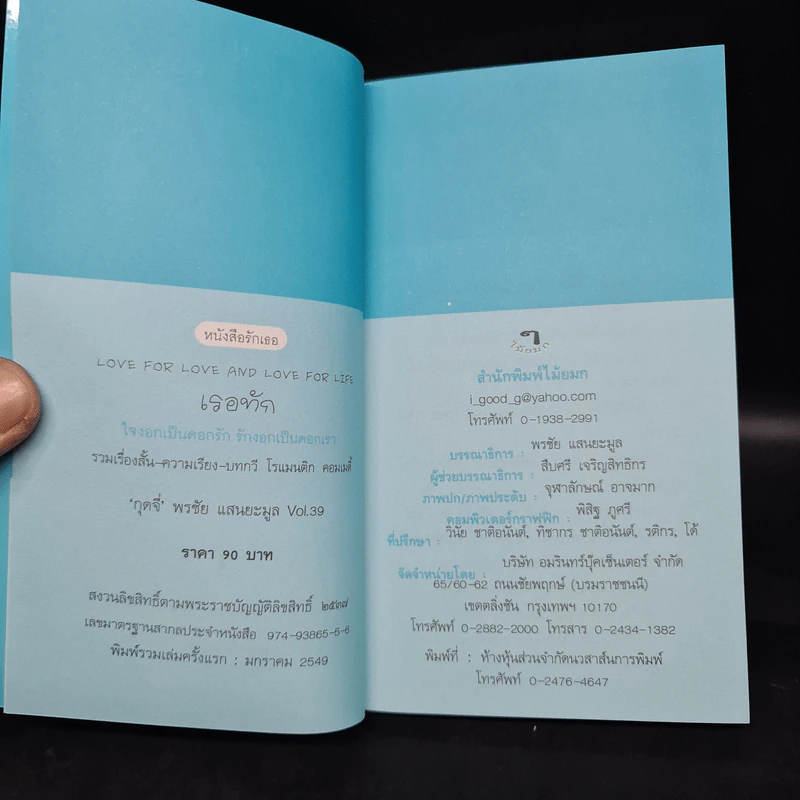 หนังสือรักเธอ
LOVE FOR LOVE AND LOVE FOR LIFE
เธอทัก
ใจงอกเป็นดอกรัก รักงอกเป็นดอกเรา
รวมเรื่องสั้น-ความเรียง-บทกวี โรแมนติก คอมเมดี้
'กุดจี่' พรชัย แสนยะมูล Vol.39
ราคา 90 บาท
สงวนลิขสิทธิ์ตามพระราชบัญญัติลิขสิทธิ์ ๒๕๓๗
เลขมาตรฐานสากลประจำหนังสือ 974-93865-5-6
พิมพ์รวมเล่มครั้งแรก : มกราคม 2549
ๆ
ไม้ยมก
สำนักพิมพ์ไม้ยมก
i_good_g@yahoo.com
โทรศัพท์ 0-1938-2991
บรรณาธิการ : พรชัย แสนยะมูล
ผู้ช่วยบรรณาธิการ : สืบศรี เจริญสิทธิกร
ภาพปก/ภาพประดับ : จุฬาลักษณ์ อาจมาก
คอมพิวเตอร์กราฟฟิก : พิสิฐ ภูศรี
ที่ปรึกษา : วินัย ชาติอนันต์, ทิชากร ชาติอนันต์, รติกร, โด้
จัดจำหน่ายโดย : บริษัท อมรินทร์บุ๊คเซ็นเตอร์ จำกัด
65/60-62 ถนนชัยพฤกษ์ (บรมราชชนนี)
เขตตลิ่งชัน กรุงเทพฯ 10170
โทรศัพท์ 0-2882-2000 โทรสาร 0-2434-1382
พิมพ์ที่ : ห้างหุ้นส่วนจำกัดนวสาส์นการพิมพ์
โทรศัพท์ 0-2476-4647